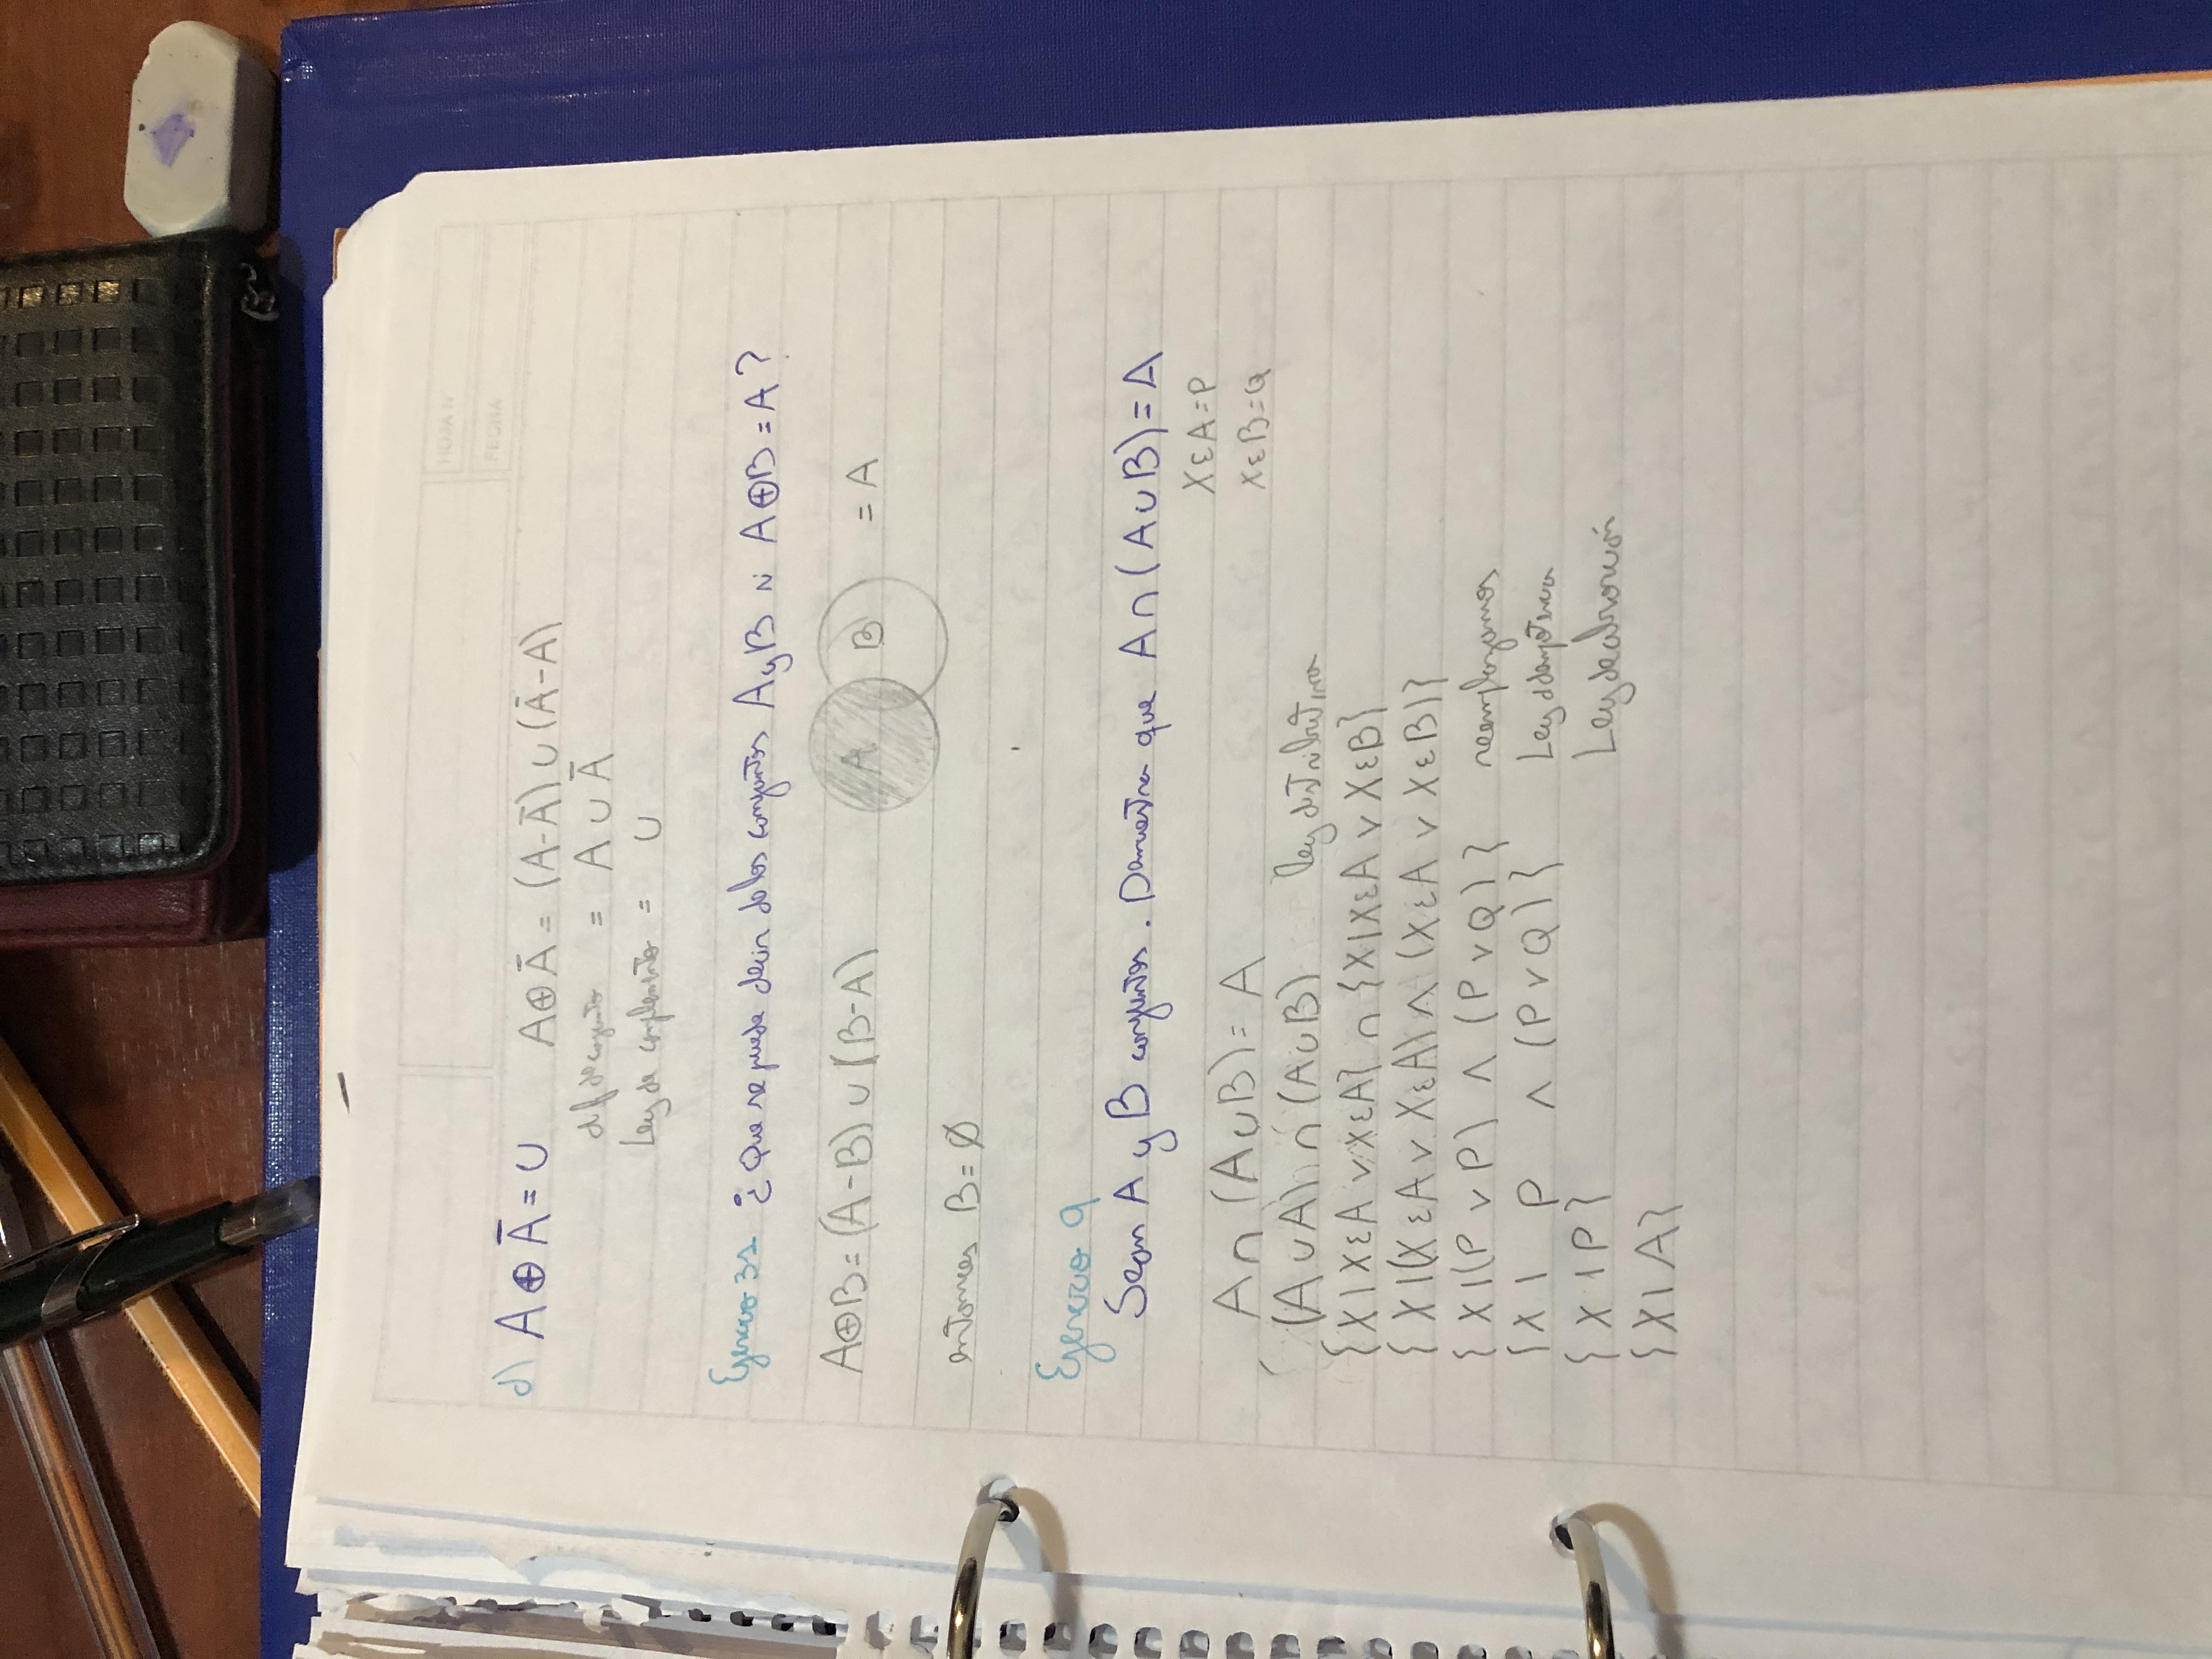 HOJA N°
FECHA
d) A ⊕ Ā = U A⊕Ā = (A-Ā) ∪ (Ā-A)
dif de conjunto = A ∪ Ā
Ley de complemento = U
Ejercicio 31 ¿Que se puede decir de los conjuntos A y B si A⊕B = A?
A⊕B = (A-B) ∪ (B-A) A B = A
entonces B = Ø
Ejercicio 9
Sean A y B conjuntos. Demuestra que A ∩ (A ∪ B) = A
XεA = P
A ∩ (A ∪ B) = A
XεB = Q
(A ∪ A) ∩ (A ∪ B) ley distributiva
{X | XεA ∨ XεA} ∩ {X | XεA ∨ XεB}
{X | (XεA ∨ XεA) ∧ (XεA ∨ XεB)}
{X | (P ∨ P) ∧ (P ∨ Q)} reemplazamos
{X | P ∧ (P ∨ Q)} Ley idempotencia
{X | P} Ley de absorción
{X | A}